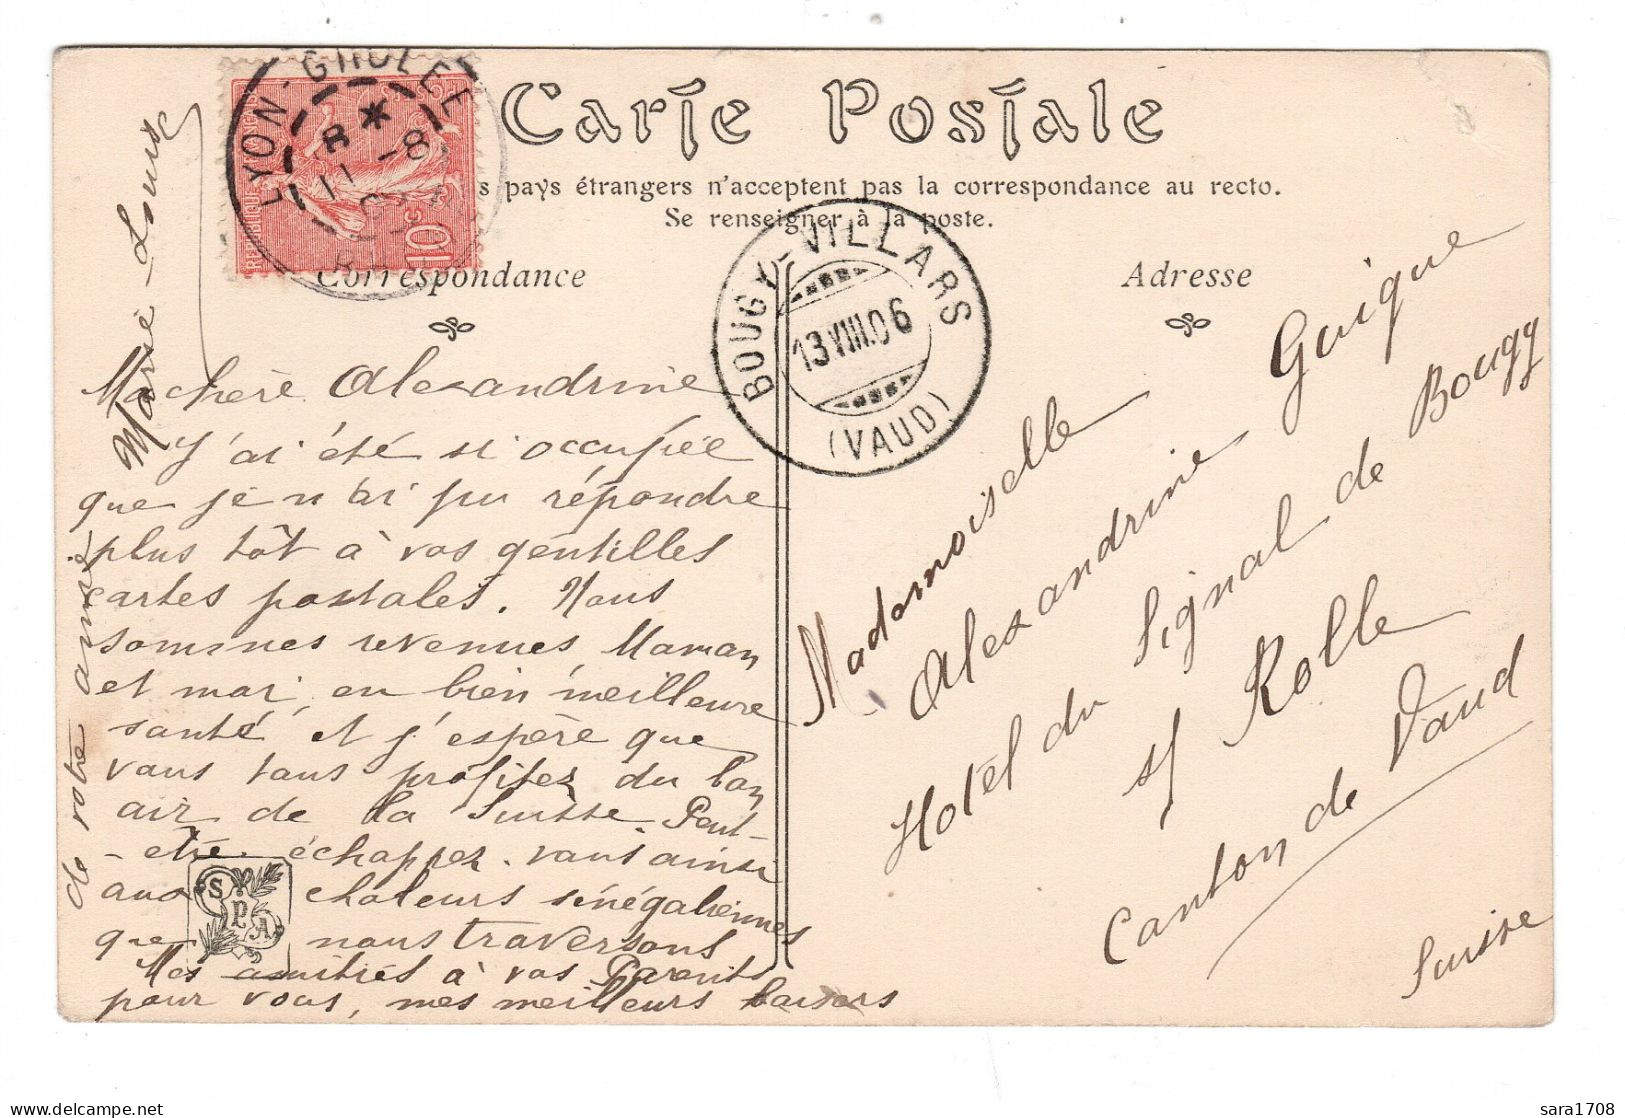 Carte Postale
s pays étrangers n'acceptent pas la correspondance au recto.
Se renseigner à la poste.
Correspondance
Adresse
LYON-GROLÉE
11 -8
RÉPUBLIQUE
10c
BOUGY-VILLARS
13 VIII.06
(VAUD)
Ma chère Alexandrine
J'ai été si occupée
que je n'ai pu répondre
plus tôt à vos gentilles
cartes postales. Nous
sommes revenues Maman
et moi, en bien meilleure
santé, et j'espère que
vous tous profitez du bon
air de la Suisse. Peut-
-être échappez-vous ainsi
aux chaleurs sénégaliennes
que nous traversons
Mes amitiés à vos Parents
pour vous, mes meilleurs baisers
de votre amie
Marie-Louise
SPA
Mademoiselle
Alexandrine Guigue
Hotel du Signal de Bougy
s/ Rolle
Canton de Vaud
Suisse
sara1708